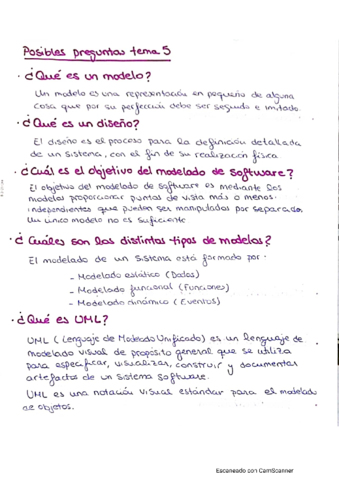 Posibles preguntas tema 5
· ¿Qué es un modelo?
Un modelo es una representación en pequeño de alguna
cosa que por su perfección debe ser seguido e imitado.
· ¿Qué es un diseño?
El diseño es el proceso para la definición detallada
de un sistema, con el fin de su realización física
· ¿Cuál es el objetivo del modelado de software?
El objetivo del modelado de software es mediante los
modelos proporcionar puntos de vista más o menos
independientes que pueden ser manipulados por separado.
Un único modelo no es suficiente
· ¿Cuáles son los distintos tipos de modelos?
El modelado de un sistema está formado por:
- Modelado estático (Datos)
- Modelado funcional (Funciones)
- Modelado dinámico (Eventos)
· ¿Qué es UML?
UML (Lenguaje de Modelado Unificado) es un lenguaje de
modelado visual de propósito general que se utiliza
para especificar, visualizar, construir y documentar
artefactos de un sistema software.
UML es una notación visual estándar para el modelado
de objetos.
Escaneado con CamScanner